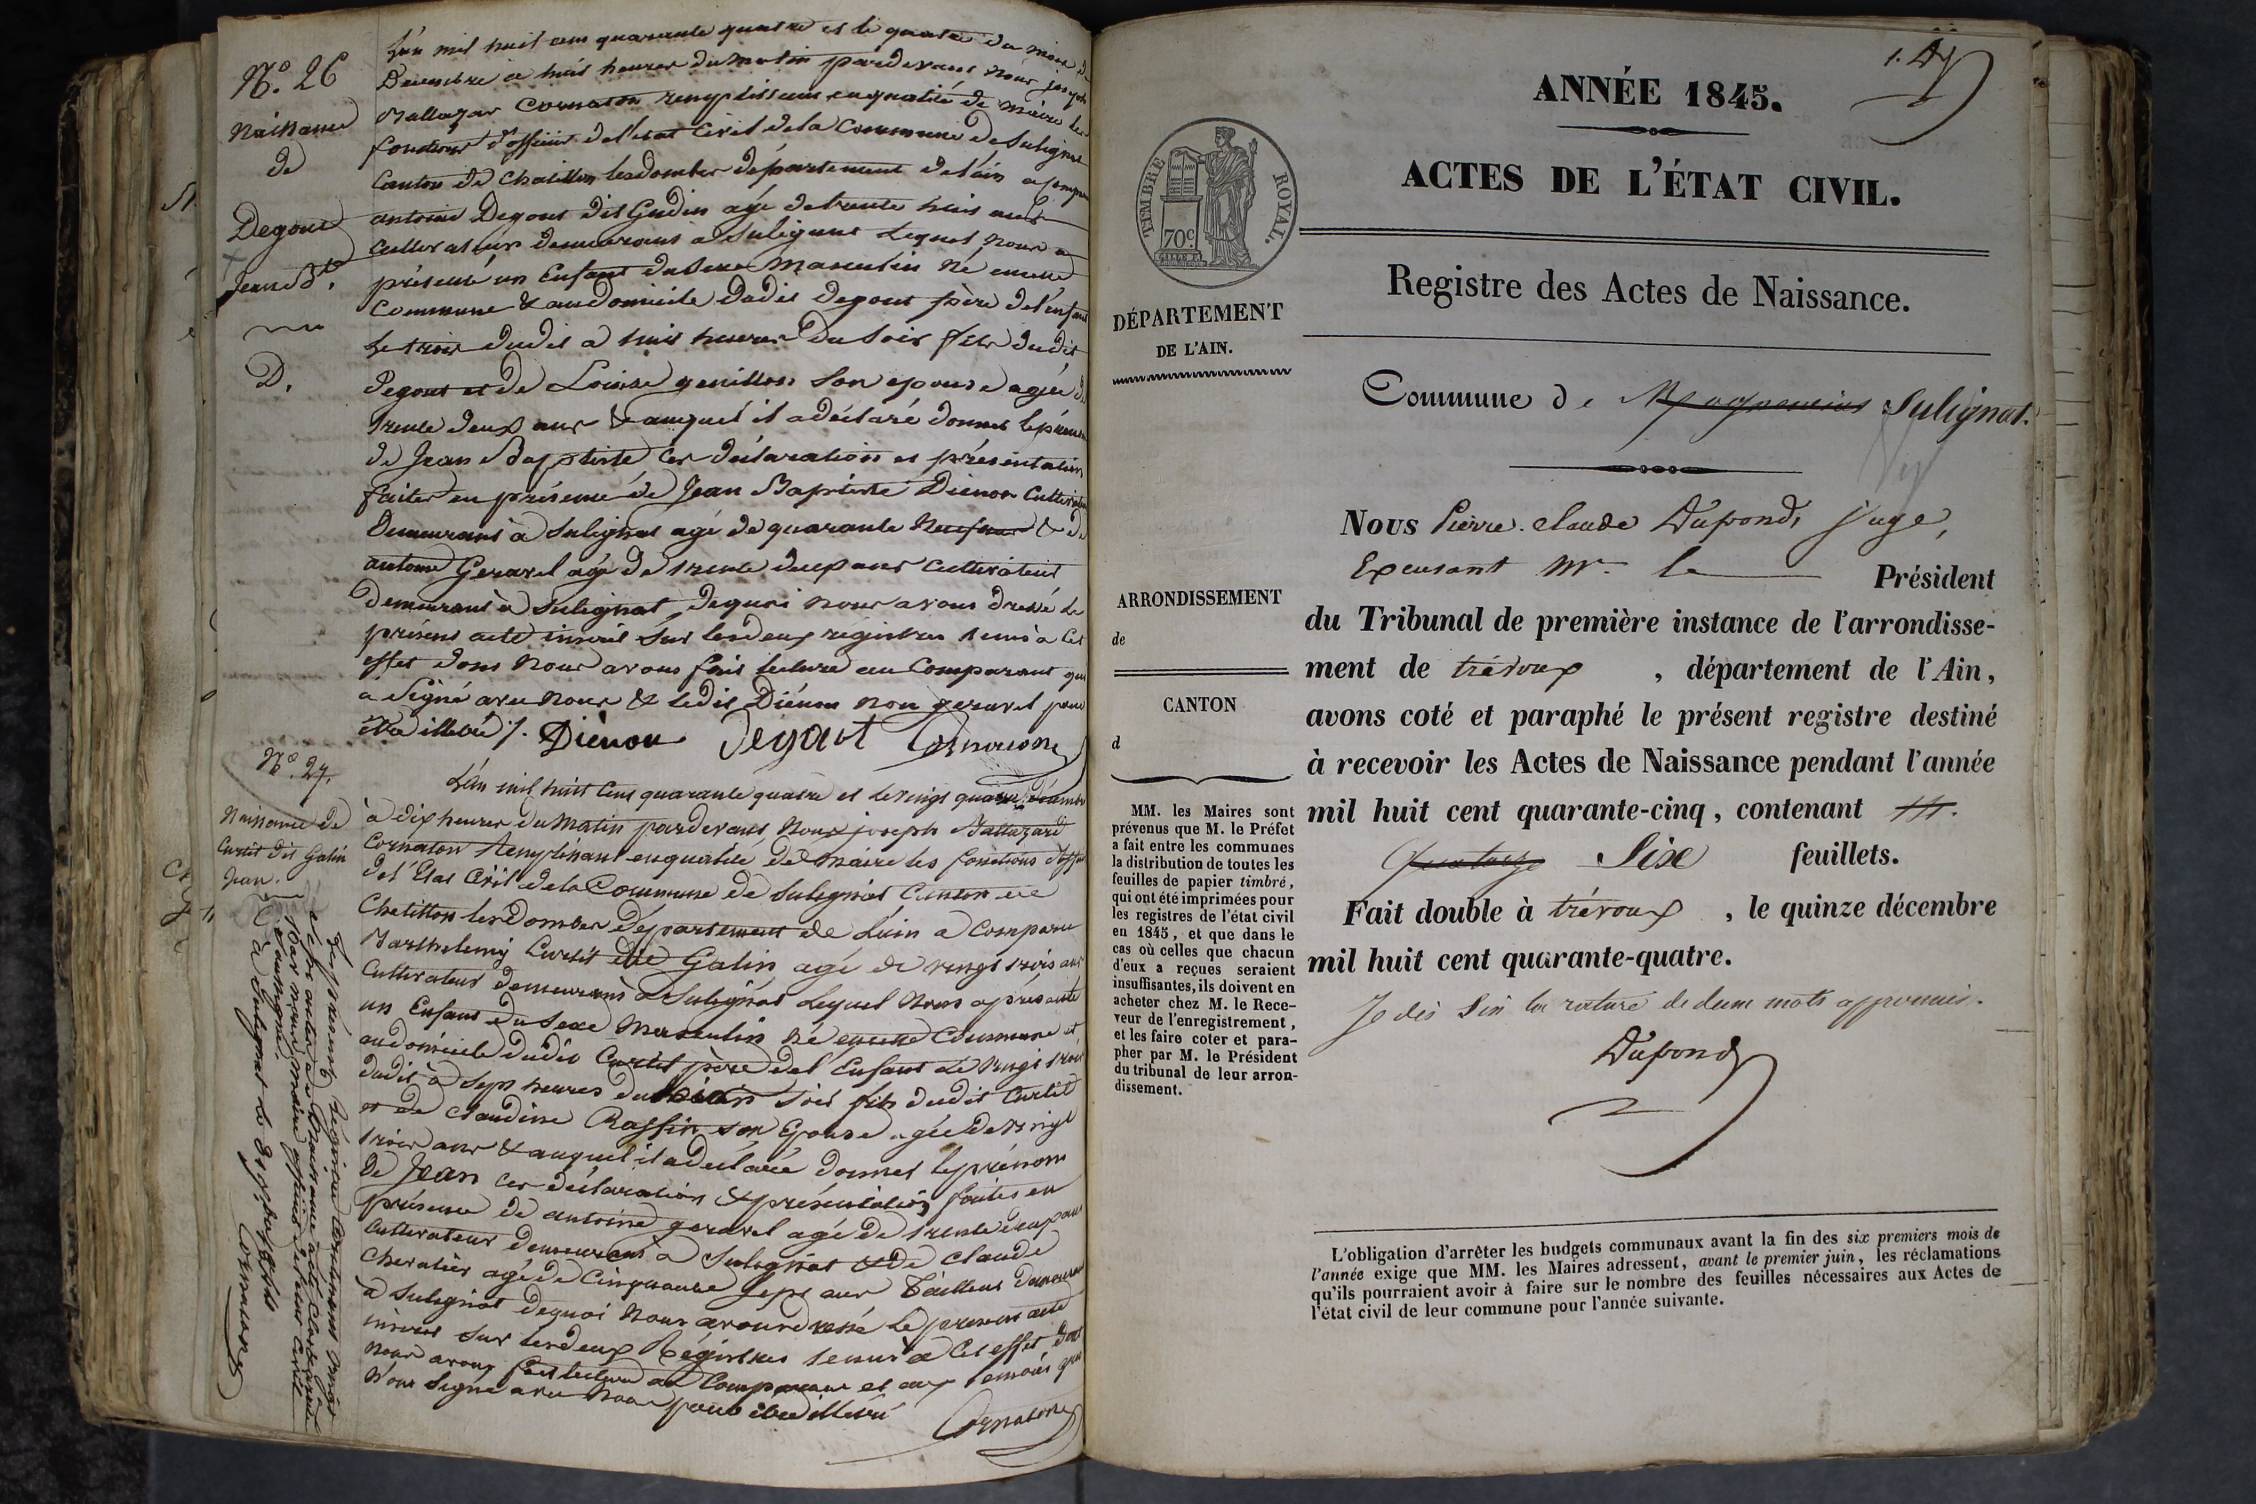 N°. 26
Naissance
de
Degout
Jean Bte.
D.
L'an mil huit cent quarante quatre et le quatre du mois de
Decembre à huit heures du matin pardevant Nous joseph
Baltazar Cornaton remplissant en qualité de Maire les
fonctions d'officier de l'etat Civil de la Commune de Sulignat
Canton de Chatillon les dombes département de l'ain a comparu
antoine Degout dit Gudin agé de trente huit ans
Cultivateur demeurant à Sulignat Lequel Nous a
présenté un Enfant du Sexe Masculin Né en cette
Commune & au domicile dudit degout père de l'enfant
Le trois dudit à huit heures du Soir fils dudit
degout et de Louise genillon Son epouse agée de
trente deux ans & auquel il a déclaré donner le prénom
de Jean Baptiste Ces déclaration et présentation
faites en présence de Jean Baptiste Diénon Cultivateur
Demeurant à Sulignat agé de quarante Neuf ans & de
antoine Geravel agé de trente deux ans Cultivateur
demeurant à Sulignat, dequoi Nous avons dressé le
présent acte inscrit Sur les deux registres tenus à Cet
effet dont Nous avons fait lecture au Comparant qui
a Signé avec Nous & ledit Diénon non geravel pour
être illétré /. Diénon Degout Cornaton
N°. 27.
Naissance de
Curtit dit Galin
Jean.
L'an mil huit Cent quarante quatre et le vingt quatre décembre
à dix heures du Matin pardevant Nous joseph Baltazard
Cornaton Remplissant en qualité de Maire les fonctions d'officier
de l'Etat Civil de la Commune de Sulignat Canton de
Chatillon les Dombes Département de L'ain a Comparu
Barthelemy Curtit dit Galin agé de vingt trois ans
Cultivateur demeurant à Sulignat Lequel Nous a présenté
un Enfant du Sexe Masculin Né en cette Commune et
au domicile dudit Curtit père de l'Enfant Le Vingt trois
dudit à Sept heures du Soir fils dudit Curtit
et de Claudine Raffin son Epouse agée de Vingt
trois ans & auquel il a déclaré donner le prénom
de Jean Ces déclaration & présentation faites en
présence de antoine geravel agé de trente deux ans
Cultivateur demeurant à Sulignat & de Claude
Chevalier agé de Cinquante Sept ans Tailleur demeurant
à Sulignat dequoi Nous avons dressé Le présent acte
inscrit Sur les deux Régistres tenus à Cet effet, dont
Nous avons fait lecture au Comparant et aux temoins qui
N'ont Signé avec Nous pour être illétré
Cornaton
Le présent Régistre Contenant vingt
sept actes de Naissance a été Clos & arrêté
Par Nous, Maire officier de l'etat Civil
Soussigné.
à Sulignat le 31 Xbre 1844
Cornaton
ANNÉE 1845.
ACTES DE L'ÉTAT CIVIL.
Registre des Actes de Naissance.
TIMBRE ROYAL.
70c.
DÉPARTEMENT
DE L'AIN.
ARRONDISSEMENT
de
CANTON
d
MM. les Maires sont
prévenus que M. le Préfet
a fait entre les communes
la distribution de toutes les
feuilles de papier timbré,
qui ont été imprimées pour
les registres de l'état civil
en 1845, et que dans le
cas où celles que chacun
d'eux a reçues seraient
insuffisantes, ils doivent en
acheter chez M. le Rece-
veur de l'enregistrement,
et les faire coter et para-
pher par M. le Président
du tribunal de leur arron-
dissement.
Commune de Sulignat.
Nous Pierre. claude Dupond, juge,
Excusant Mr. le Président
du Tribunal de première instance de l'arrondisse-
ment de trévoux, département de l'Ain,
avons coté et paraphé le présent registre destiné
à recevoir les Actes de Naissance pendant l'année
mil huit cent quarante-cinq, contenant
quatorze Six feuillets.
Fait double à trévoux, le quinze décembre
mil huit cent quarante-quatre.
Je dis Six la rature de deux mots approuvée.
Dupond
L'obligation d'arrêter les budgets communaux avant la fin des six premiers mois de
l'année exige que MM. les Maires adressent, avant le premier juin, les réclamations
qu'ils pourraient avoir à faire sur le nombre des feuilles nécessaires aux Actes de
l'état civil de leur commune pour l'année suivante.